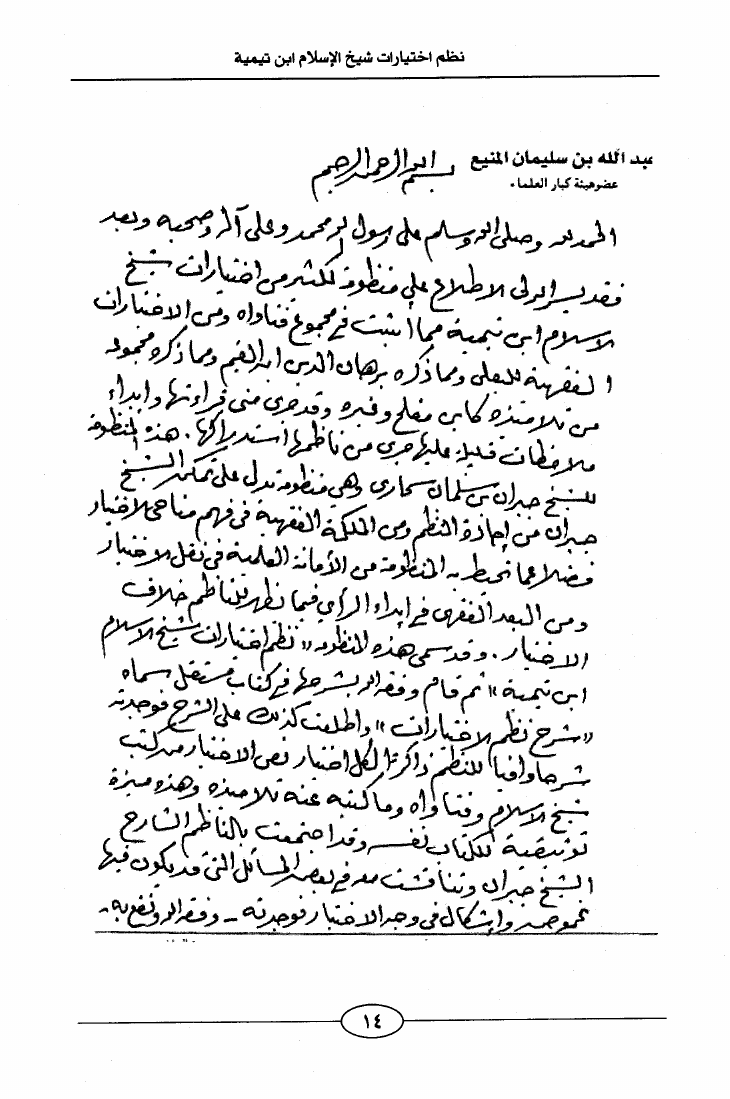 نظم اختيارات شيخ الإسلام ابن تيمية
عبد الله بن سليمان المنيع
عضو هيئة كبار العلماء
بسم الله الرحمن الرحيم
الحمد لله وصلى الله وسلم على رسول الله محمد وعلى آله وصحبه وبعد
فقد يسر الله لي الاطلاع على منظومة لكثير من اختيارات شيخ
الاسلام ابن تيمية مما اثبت في مجموع فتاواه ومن الاختيارات
الفقهية للبعلي ومما ذكره برهان الدين ابن القيم ومما ذكره مجموعة
من تلامذته كابن مفلح وغيره وقد جرى مني قراءتها وابداء
ملاحظات قليلة عليها جرى من ناظمها استدراكها. هذه المنظومة
للشيخ جبران بن سلمان سحاري وهي منظومة تدل على تمكن الشيخ
جبران من إجادة النظم ومن الملكة الفقهية في فهم مناحي الاختيار
فضلا عما تحيط به المنظومة من الأمانة العلمية في نقل الاختيار
ومن البعد الفقهي في ابداء الرأي فيما نظهر للناظم خلاف
الاختيار. وقد سمى هذه المنظومة «نظم اختيارات شيخ الاسلام
ابن تيمية» ثم قام وفقه الله بشرحها في كتاب مستقل سماه
«شرح نظم الاختيارات» واطلعت كذلك على الشرح فوجدته
شرحا وافيا للنظم ذاكرا لكل اختيار نص الاختيار من كتب
شيخ الاسلام وفتاواه وما كتبه عنه تلامذه وهذه ميزة
توثيقية للكتاب نفسه وقد اجتمعت بالناظم الشارح
الشيخ جبران وتناقشت معه في بعض المسائل التي قد يكون فيها
غموض وإشكال في وجه الاختيار فوجدته - وفقه الله ونفع به -
١٤